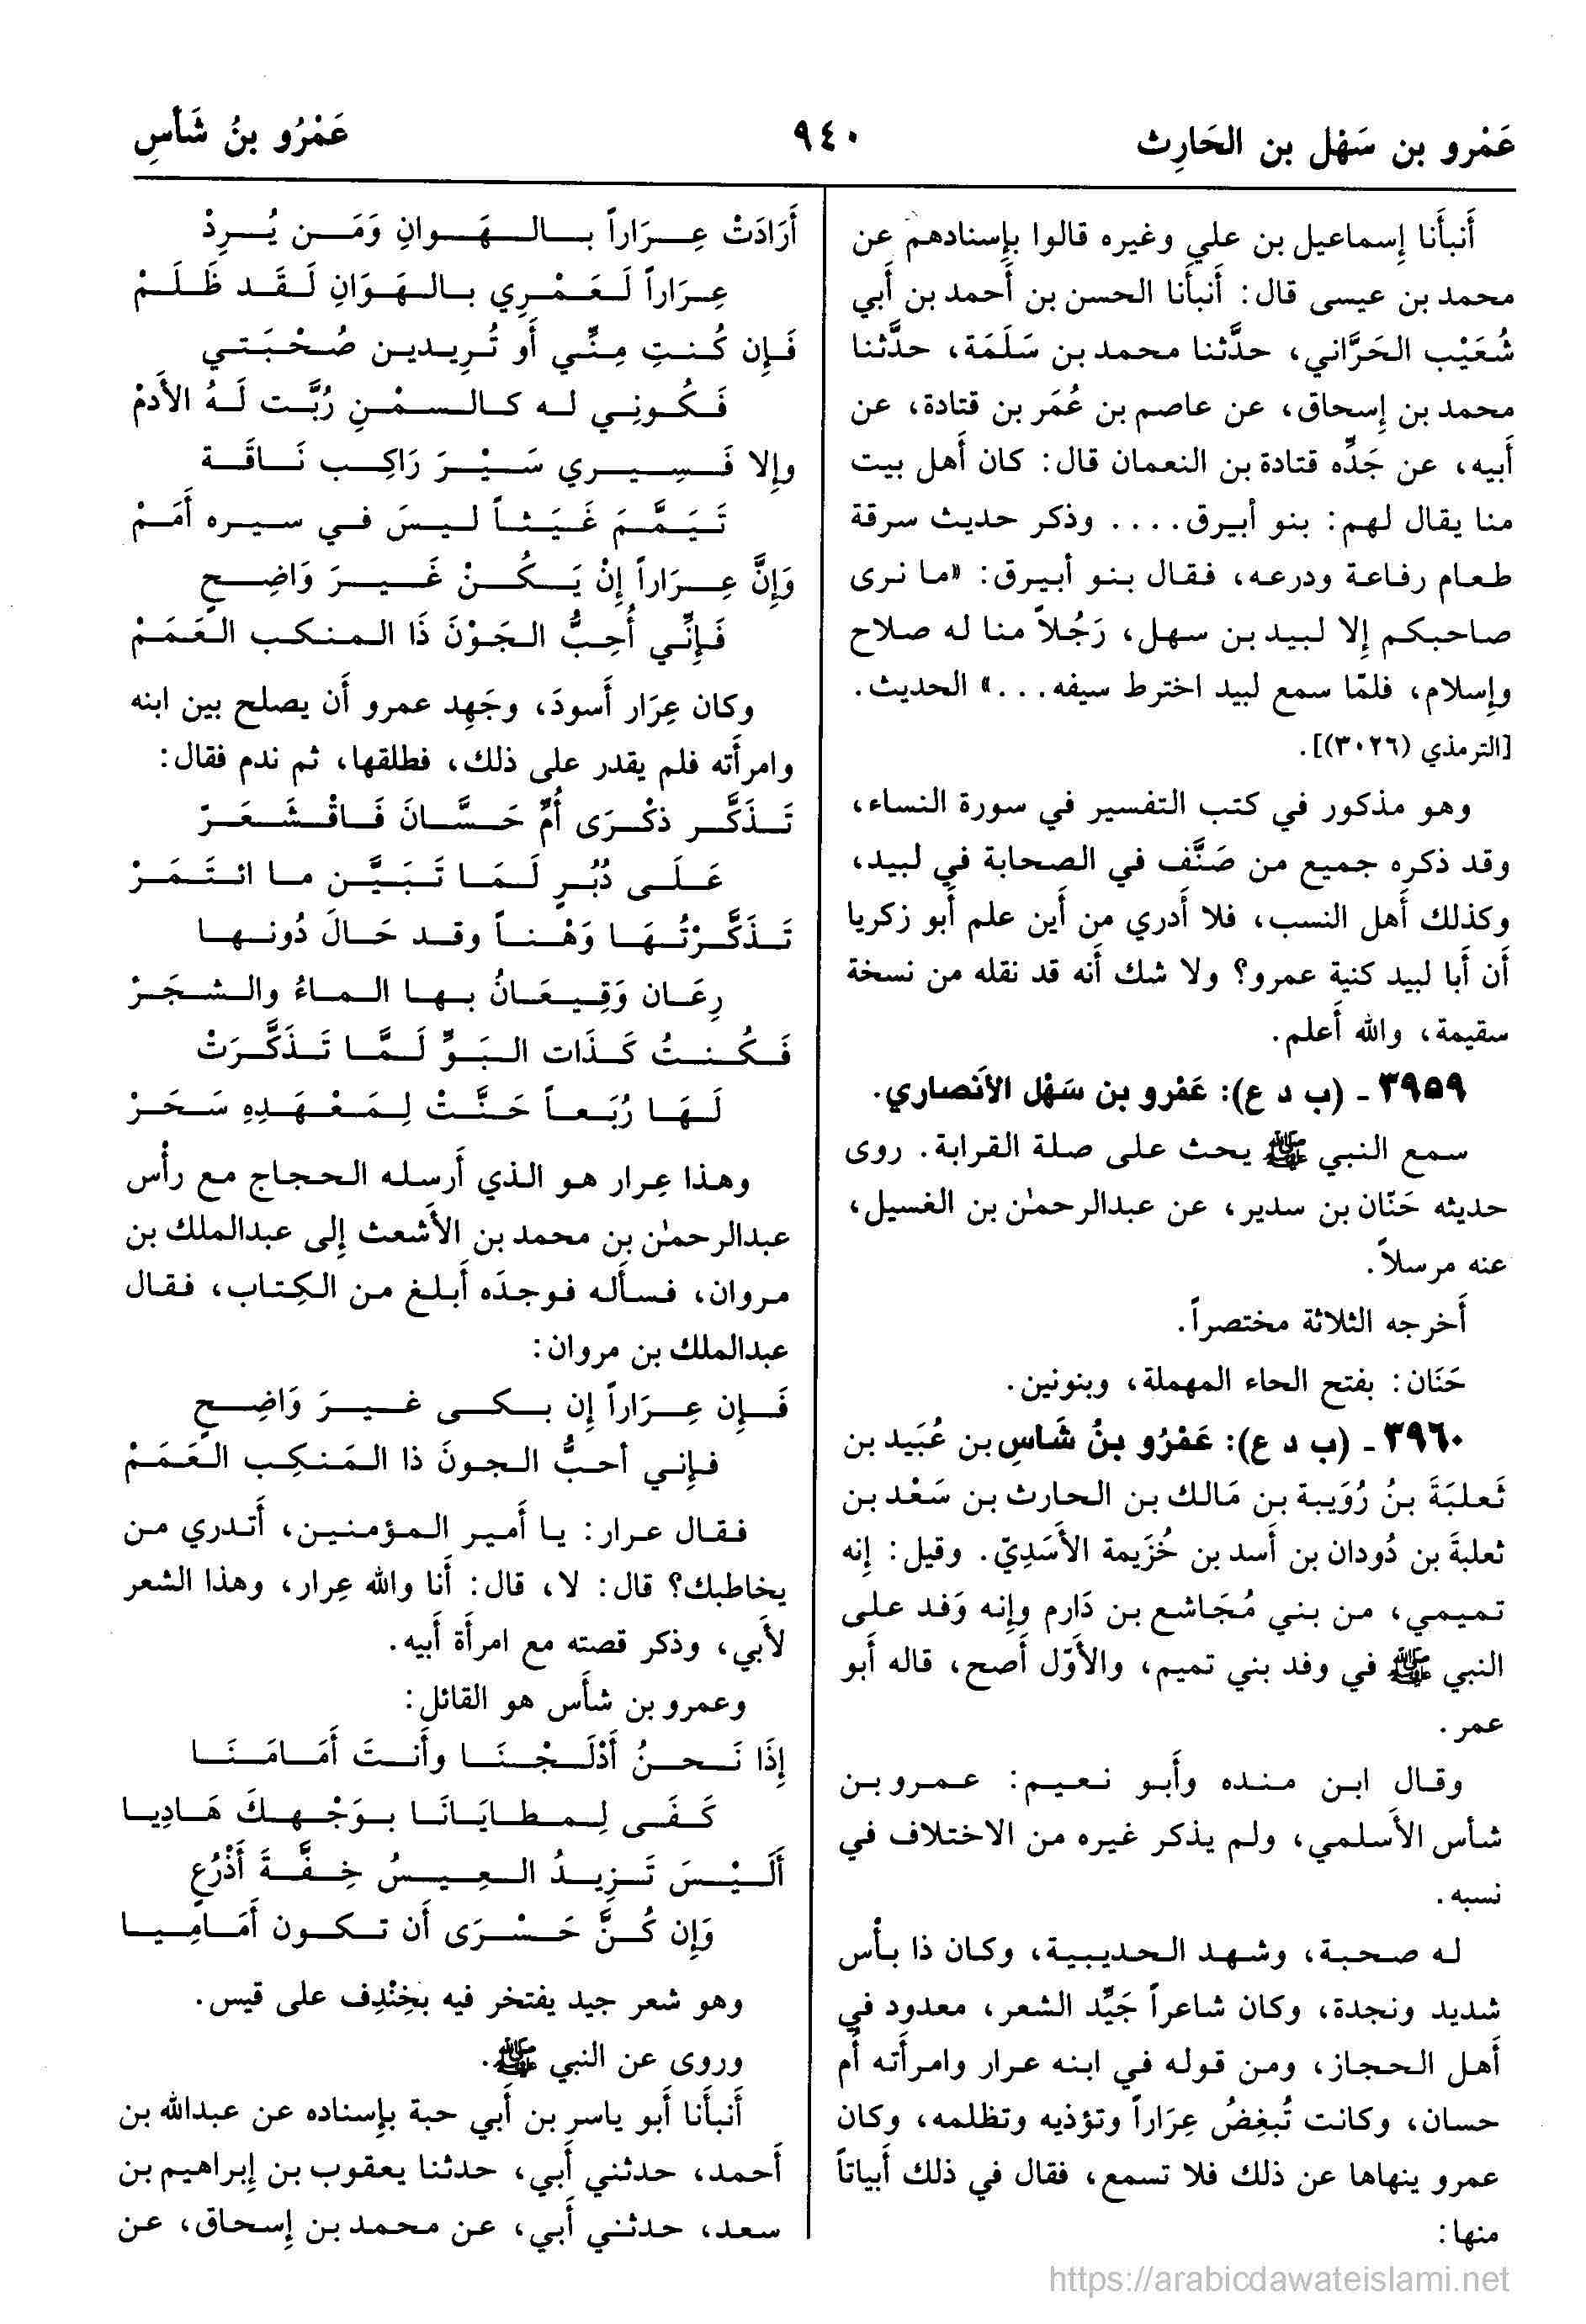 عَمْرو بن سَهْل بن الحَارِث
٩٤٠
عَمْرُو بنُ شَأسِ
أَنبأَنا إِسماعيل بن علي وغيره قالوا بإِسنادهم عن
محمد بن عيسى قال: أَنبأَنا الحسن بن أَحمد بن أَبي
شُعَيْب الحَرَّاني، حدَّثنا محمد بن سَلَمَة، حدَّثنا
محمد بن إِسحاق، عن عاصم بن عُمَر بن قتادة، عن
أَبيه، عن جَدِّه قتادة بن النعمان قال: كان أَهل بيت
منا يقال لهم: بنو أبيرق.... وذكر حديث سرقة
طعام رفاعة ودرعه، فقال بنو أبيرق: «ما نرى
صاحبكم إِلا لبيد بن سهل، رَجُلاً منا له صلاح
وإِسلام، فلمّا سمع لبيد اخترط سيفه...» الحديث.
[الترمذي (٣٠٢٦)].
وهو مذكور في كتب التفسير في سورة النساء،
وقد ذكره جميع من صَنَّف في الصحابة في لبيد،
وكذلك أَهل النسب، فلا أَدري من أَين علم أَبو زكريا
أَن أَبا لبيد كنية عمرو؟ ولا شك أَنه قد نقله من نسخة
سقيمة، والله أَعلم.
٣٩٥٩ - (ب د ع): عَمْرو بن سَهْل الأَنصاري.
سمع النبي ﷺ يحث على صلة القرابة. روى
حديثه حَنّان بن سدير، عن عبدالرحمٰن بن الغسيل،
عنه مرسلاً.
أَخرجه الثلاثة مختصراً.
حَنَان: بفتح الحاء المهملة، وبنونين.
٣٩٦٠ - (ب د ع): عَمْرُو بنُ شَاسِ بن عُبَيد بن
ثَعلبَةَ بنُ رُوَيبة بن مَالك بن الحارث بن سَعْد بن
ثعلبةَ بن دُودان بن أَسد بن خُزَيمة الأَسَدِيّ. وقيل: إِنه
تميمي، من بني مُجَاشع بن دَارم وإِنه وَفد على
النبي ﷺ في وفد بني تميم، والأَوّل أَصح، قاله أَبو
عمر.
وقال ابن منده وأَبو نعيم: عمرو بن
شأس الأَسلمي، ولم يذكر غيره من الاختلاف في
نسبه.
له صحبة، وشهد الحديبية، وكان ذا بأْس
شديد ونجدة، وكان شاعراً جَيِّد الشعر، معدود في
أَهل الحجاز، ومن قوله في ابنه عرار وامرأَته أُم
حسان، وكانت تُبغِضُ عِرَاراً وتؤذيه وتظلمه، وكان
عمرو ينهاها عن ذلك فلا تسمع، فقال في ذلك أَبياتاً
منها:
أَرَادَتْ عِرَاراً بالهَوانِ وَمَن يُرِدْ
عِرَاراً لَعَمْرِي بالهَوَانِ لَقَد ظَلَمْ
فَإِن كُنتِ مِنِّي أَو تُرِيدين صُحْبَتي
فَكُونِي له كالسمْنِ رُبَّت لَهُ الأَدمْ
وإِلا فَسِيري سَيْرَ رَاكِب نَاقَة
تَيَمَّمَ غَيَثاً ليسَ في سيره أَمَمْ
وَإِنَّ عِرَاراً إِنْ يَكُنْ غَيرَ وَاضِحٍ
فَإِنِّي أُحِبُّ الجَوْنَ ذَا المنكب العَمَمْ
وكان عِرَار أَسودَ، وجَهِد عمرو أَن يصلح بين ابنه
وامرأَته فلم يقدر على ذلك، فطلقها، ثم ندم فقال:
تَذَكَّر ذكْرَى أُمِّ حَسَّانَ فَاقْشَعَرّ
عَلَى دُبُرٍ لَمَا تَبَيَّن ما ائتَمَرْ
تَذَكَّرْتُهَا وَهْناً وقد حَالَ دُونها
رِعَان وَقِيعَانُ بها الماءُ والشجَرْ
فَكُنتُ كَذَات البَوِّ لَمَّا تَذَكَّرَتْ
لَهَا رُبَعاً حَنَّتْ لِمَعْهَدِهِ سَحَرْ
وهذا عِرار هو الذي أَرسله الحجاج مع رأْس
عبدالرحمٰن بن محمد بن الأَشعث إِلى عبدالملك بن
مروان، فسأَله فوجدَه أَبلغ من الكِتاب، فقال
عبدالملك بن مروان:
فَإِن عِرَاراً إِن بكى غيرَ وَاضِحٍ
فإِني أحبُّ الجونَ ذا المَنكِب العَمَمْ
فقال عرار: يا أَمير المؤمنين، أَتدري من
يخاطبك؟ قال: لا، قال: أَنا والله عِرار، وهذا الشعر
لأَبي، وذكر قصته مع امرأَة أَبيه.
وعمرو بن شأَس هو القائل:
إِذَا نَحنُ أَدْلَجْنَا وأَنتَ أَمَامَنَا
كَفَى لِمطايَانَا بوَجْهكَ هَادِيا
أَلَيْسَ تَزِيدُ العِيسُ خِفَّةَ أَذْرُعٍ
وَإِن كُنَّ حَسْرَى أَن تكون أَمَامِيا
وهو شعر جيد يفتخر فيه بخِنْدِف على قيس.
وروى عن النبي ﷺ.
أَنبأَنا أَبو ياسر بن أَبي حبة بإِسناده عن عبدالله بن
أَحمد، حدثني أَبي، حدثنا يعقوب بن إِبراهيم بن
سعد، حدثني أَبي، عن محمد بن إِسحاق، عن
https://arabicdawateislami.net